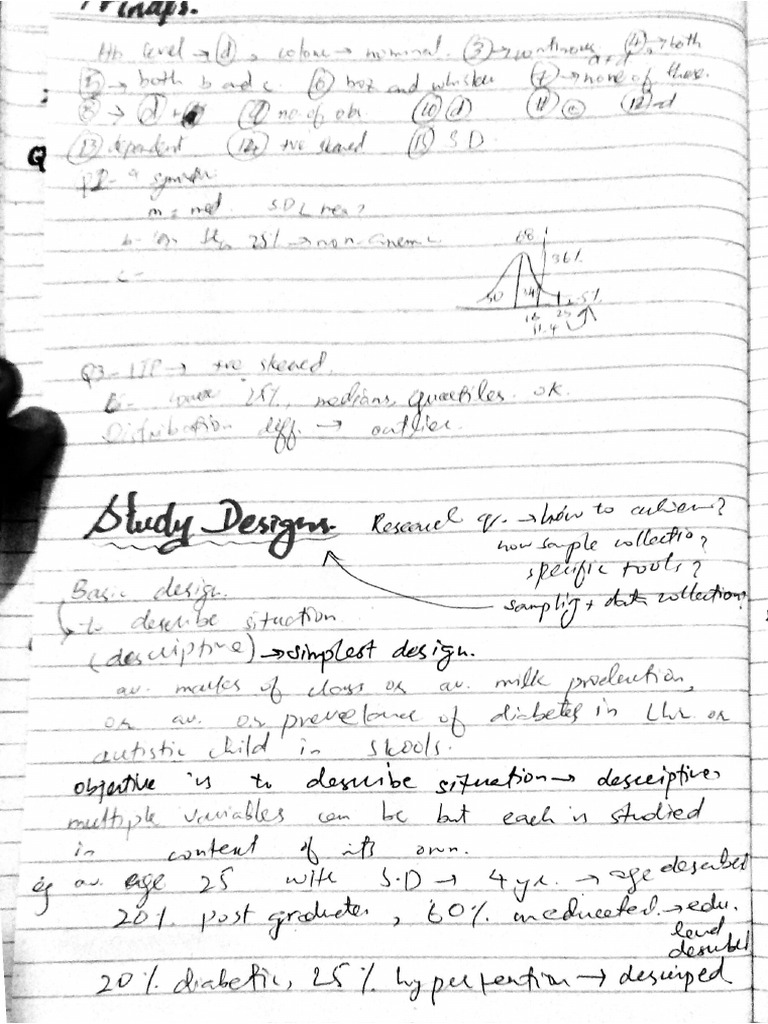 Hb level → (d), colour → nominal. (3) → continuous (4) → both
a + d
(5) → both b and c. (6) box and whisker (7) → none of these.
(8) → (d) (9) no. of obs. (10) (d) (11) (c) (12) d
(13) dependent (14) +ve skewed (15) S D
Q
m = med. SD
b- 25% → non-anemic
68
36%
50 34 2.5%
16 25
11.4
c -
Q3 - +ve skewed.
B- lower 25%, medians, quartiles ok.
Distribution diff. → outlier.
Study Designs. Research q. → how to achieve?
how sample collection?
specific tools?
Basic design. sampling + data collection?
to describe situation
(descriptive) → simplest design.
av. marks of class or av. milk production,
or av. or prevelance of diabetes in Lhr or
autistic child in skools.
objective is to describe situation → descriptive
multiple variables can be but each is studied
in content of its own.
eg av. age 25 with S.D → 4 yr. → age described
20% post graduates, 60% uneducated → edu.
level
described
20% diabetic, 25% hypertention → descriped